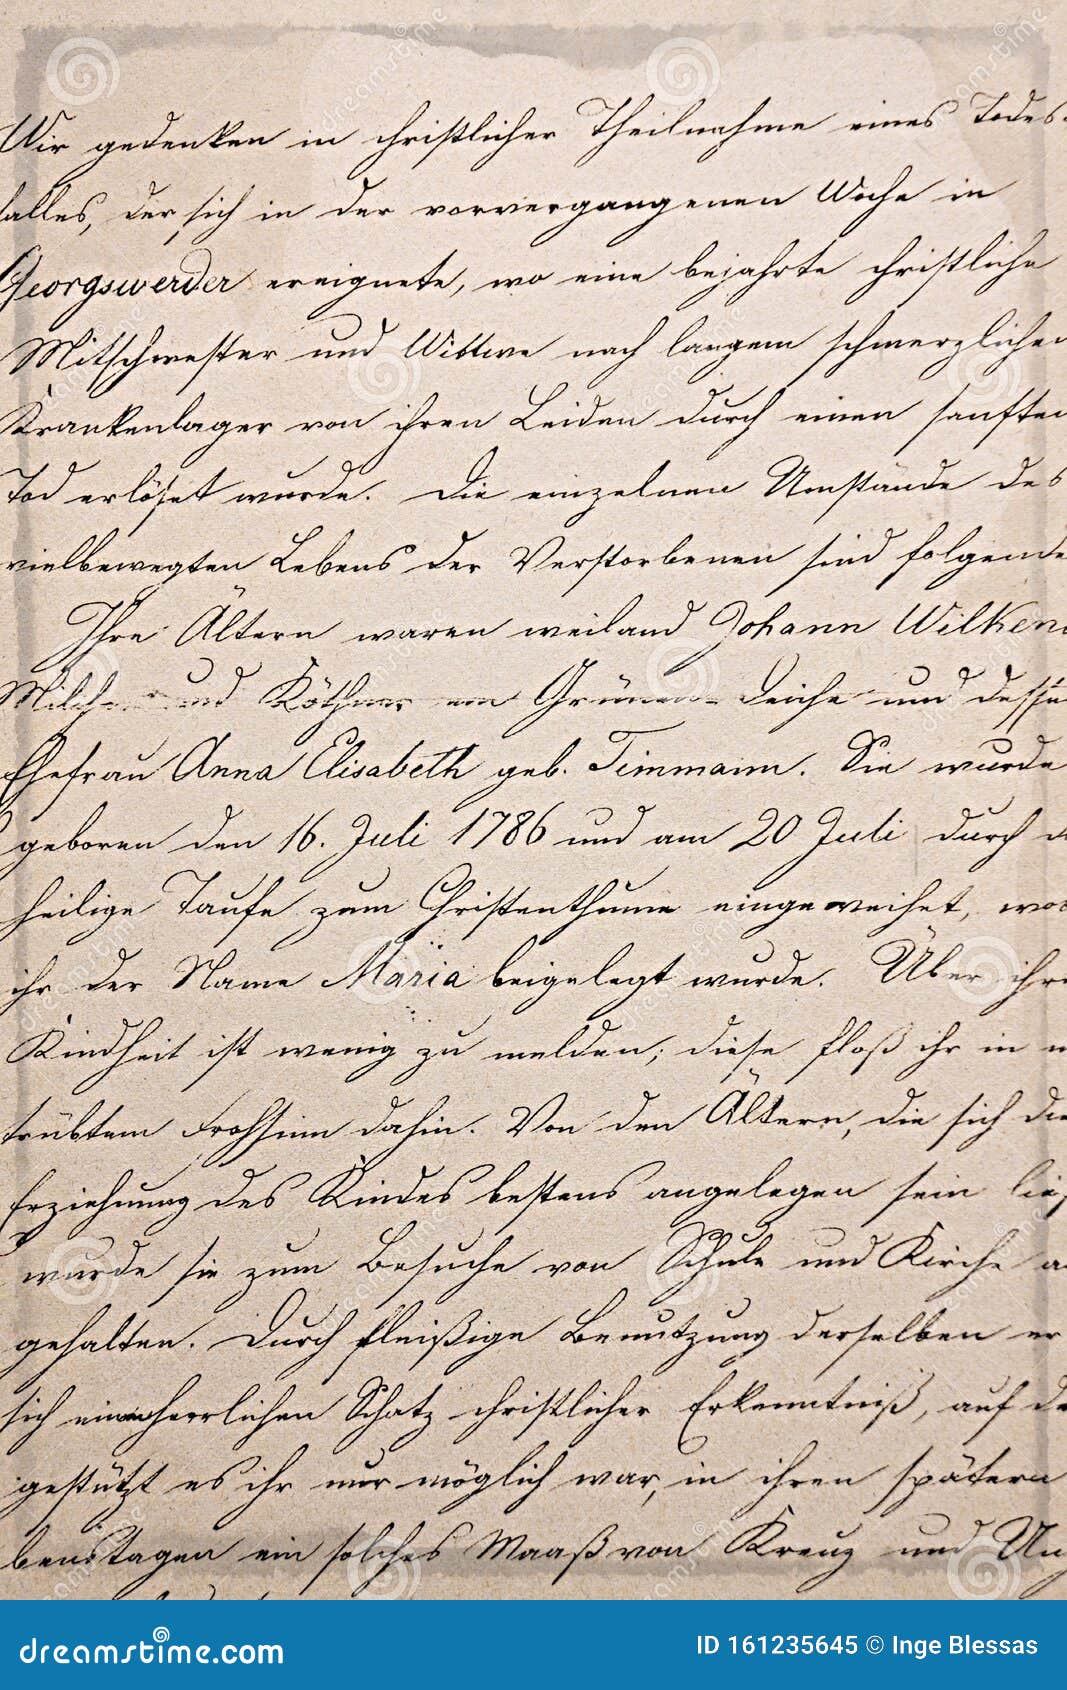 Wir gedenken in christlicher Theilnahme eines Todes-
falles, der sich in der vorvergangenen Woche in
Georgswerder ereignete, wo eine bejahrte christliche
Mitschwester und Wittwe nach langem schmerzlichen
Krankenlager von ihren Leiden durch einen sanften
Tod erlöset wurde. Die einzelnen Umstände des
vielbewegten Lebens der Verstorbenen sind folgende
Ihre Ältern waren weiland Johann Wilken
und Köthner am Grünen-Deiche und dessen
Ehefrau Anna Elisabeth geb. Timmann. Sie wurde
geboren den 16. Juli 1786 und am 20 Juli durch d
heilige Taufe zum Christenthume eingeweihet, wo
ihr der Name Maria beigelegt wurde. Über ihre
Kindheit ist wenig zu melden; diese floß ihr in
trübtem Frohsinn dahin. Von den Ältern, die sich die
Erziehung des Kindes bestens angelegen sein ließ
wurde sie zum Besuche von Schule und Kirche a
gehalten. Durch fleißige Benutzung derselben er
sich einen herrlichen Schatz christlicher Erkenntniß, auf de
gestützt es ihr nur möglich war, in ihren spätern
benstagen ein solches Maaß von Kreuz und Un
dreamstime.com
ID 161235645 © Inge Blessas